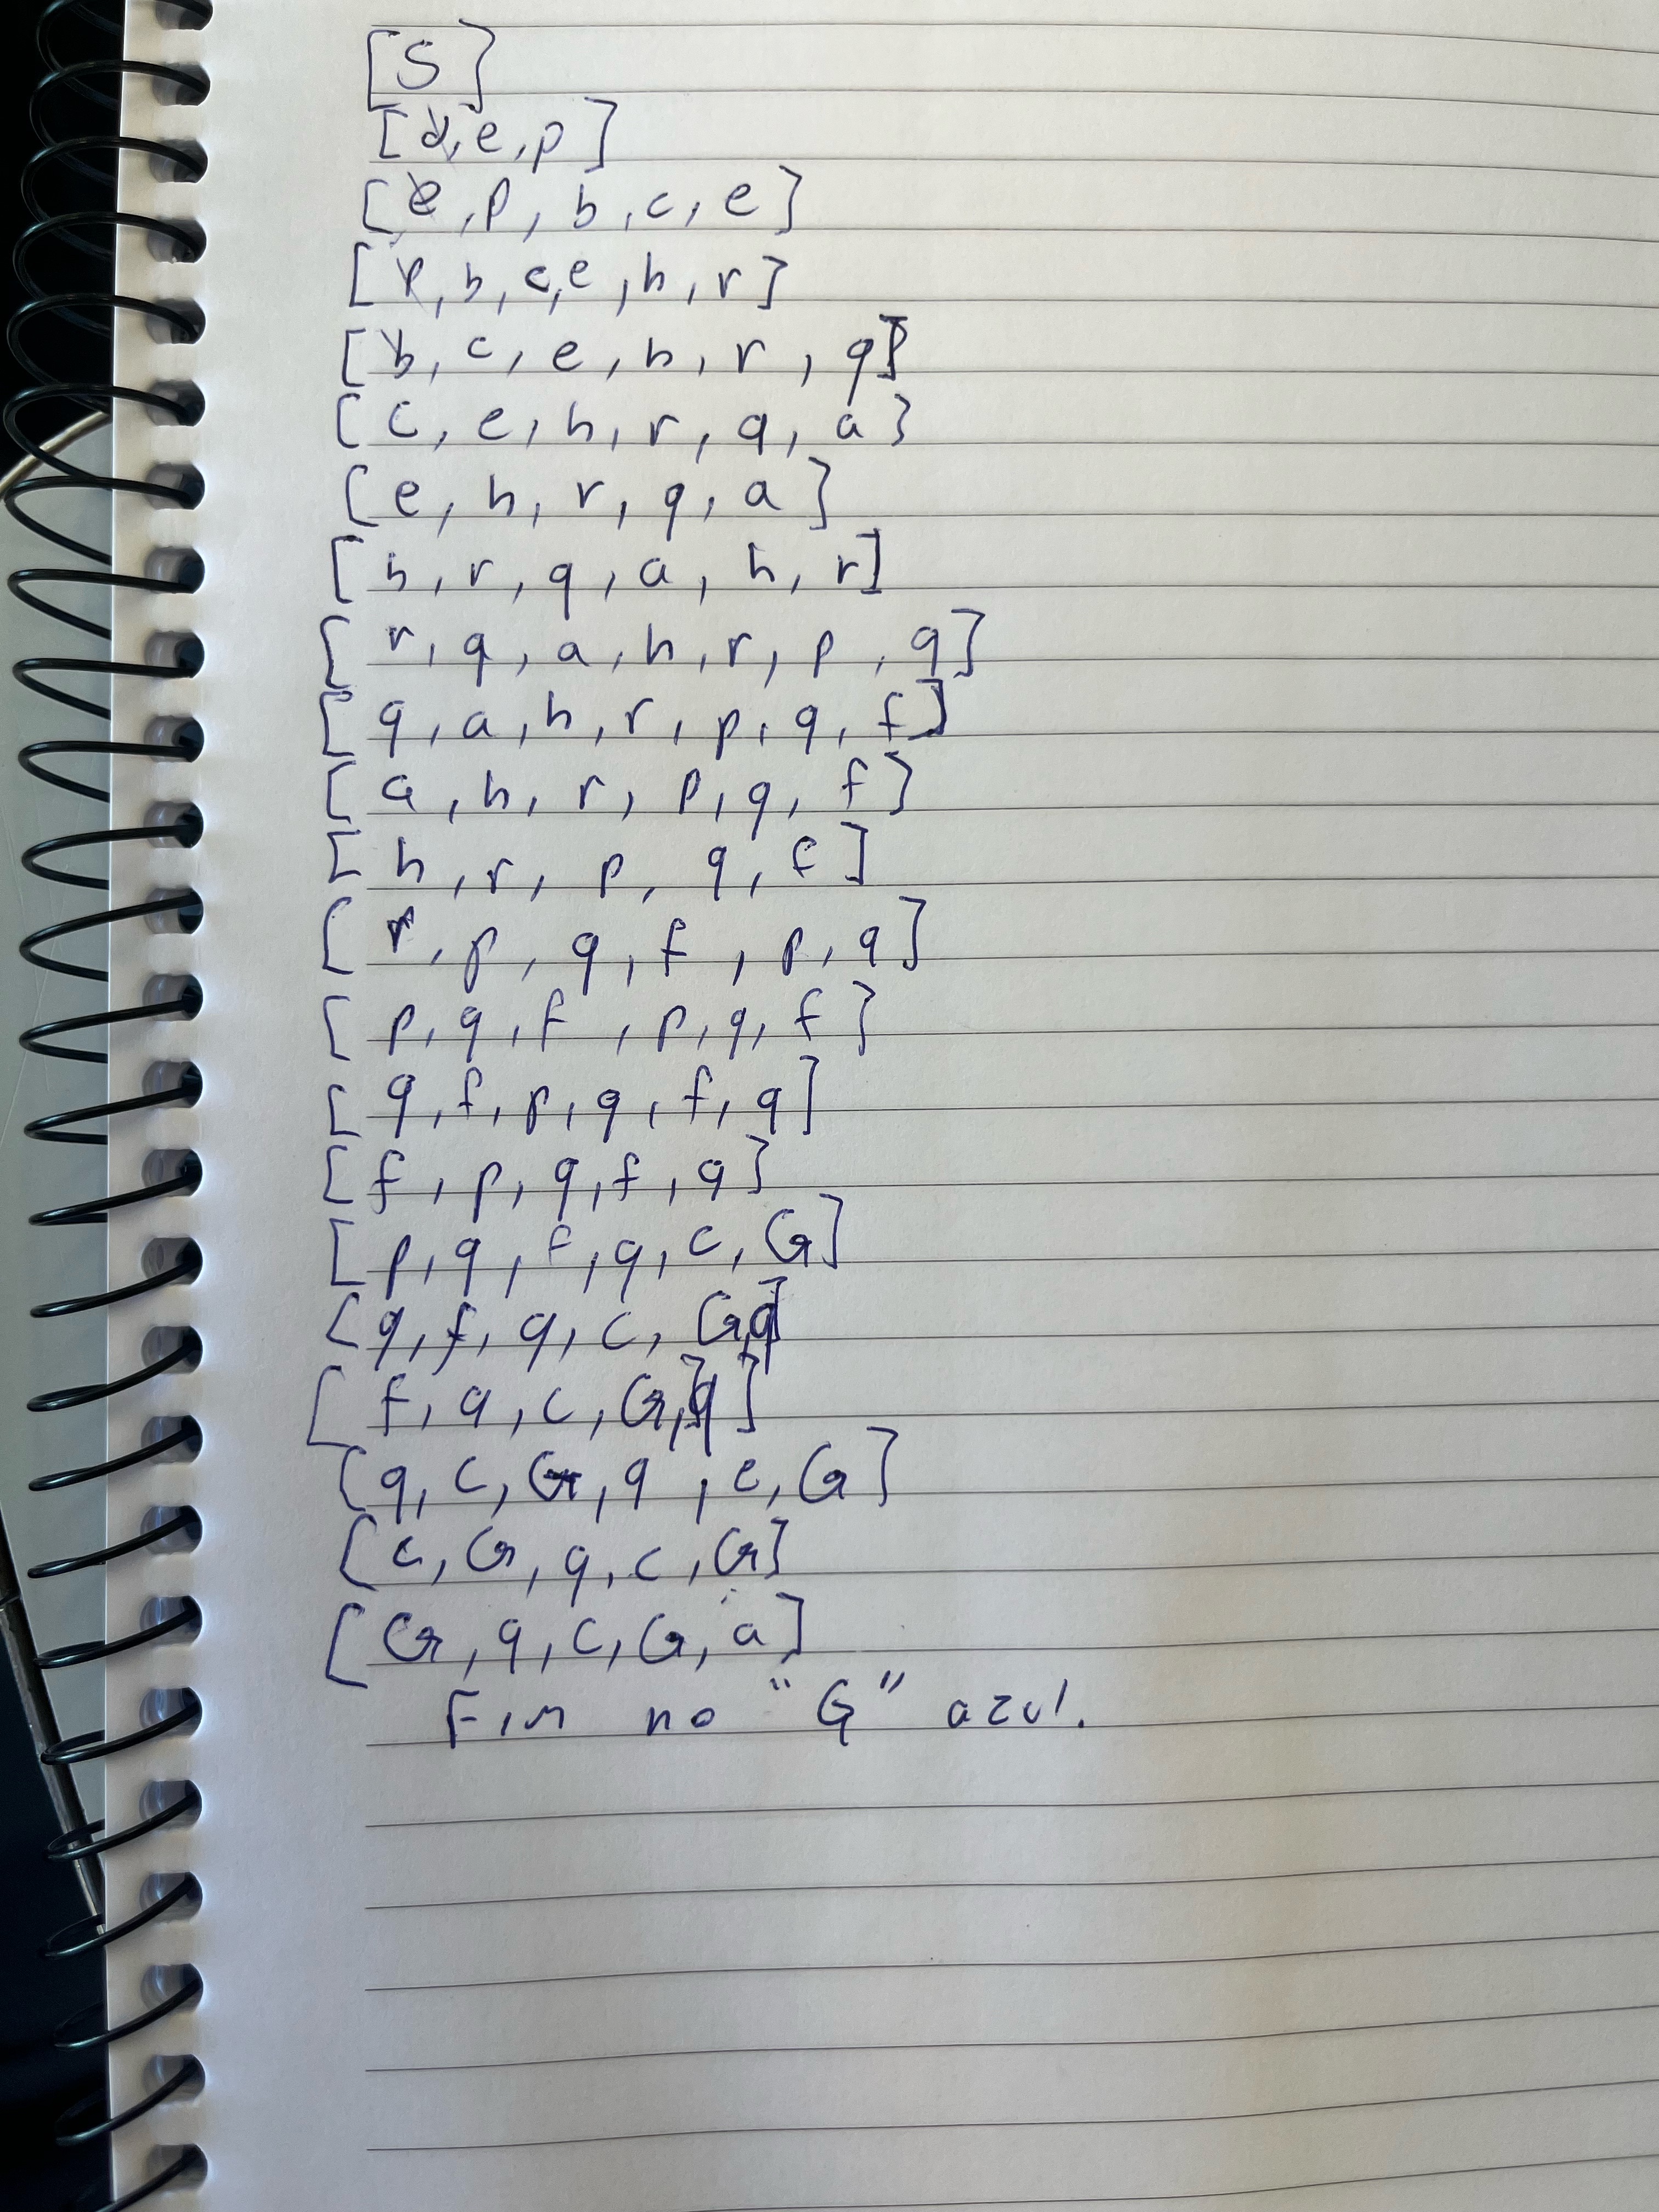 [S]
[d, e, p]
[e, p, b, c, e]
[p, b, c, e, h, r]
[b, c, e, h, r, q]
[c, e, h, r, q, a]
[e, h, r, q, a]
[h, r, q, a, h, r]
[r, q, a, h, r, p, q]
[q, a, h, r, p, q, f]
[a, h, r, p, q, f]
[h, r, p, q, f]
[r, p, q, f, p, q]
[p, q, f, p, q, f]
[q, f, p, q, f, q]
[f, p, q, f, q]
[p, q, f, q, c, G]
[q, f, q, c, G, q]
[f, q, c, G, q]
[q, c, G, q, c, G]
[c, G, q, c, G]
[G, q, c, G, a]
Fim no "G" azul.